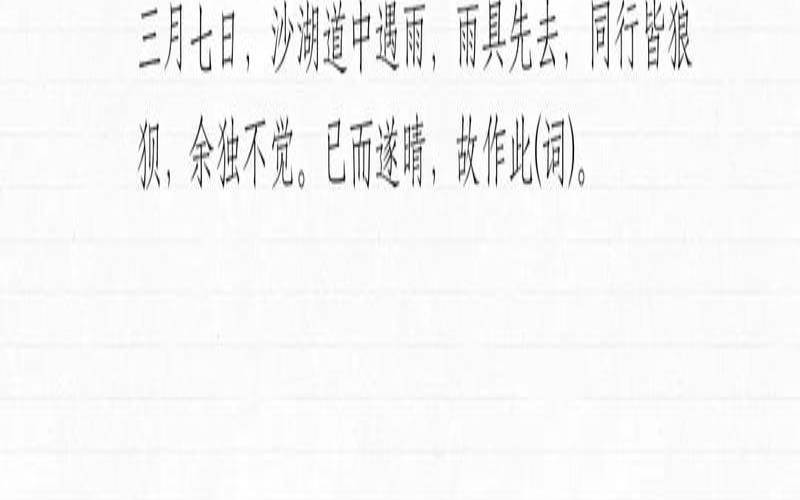 三月七日，沙湖道中遇雨，雨具先去，同行皆狼
狈，余独不觉。已而遂晴，故作此(词)。